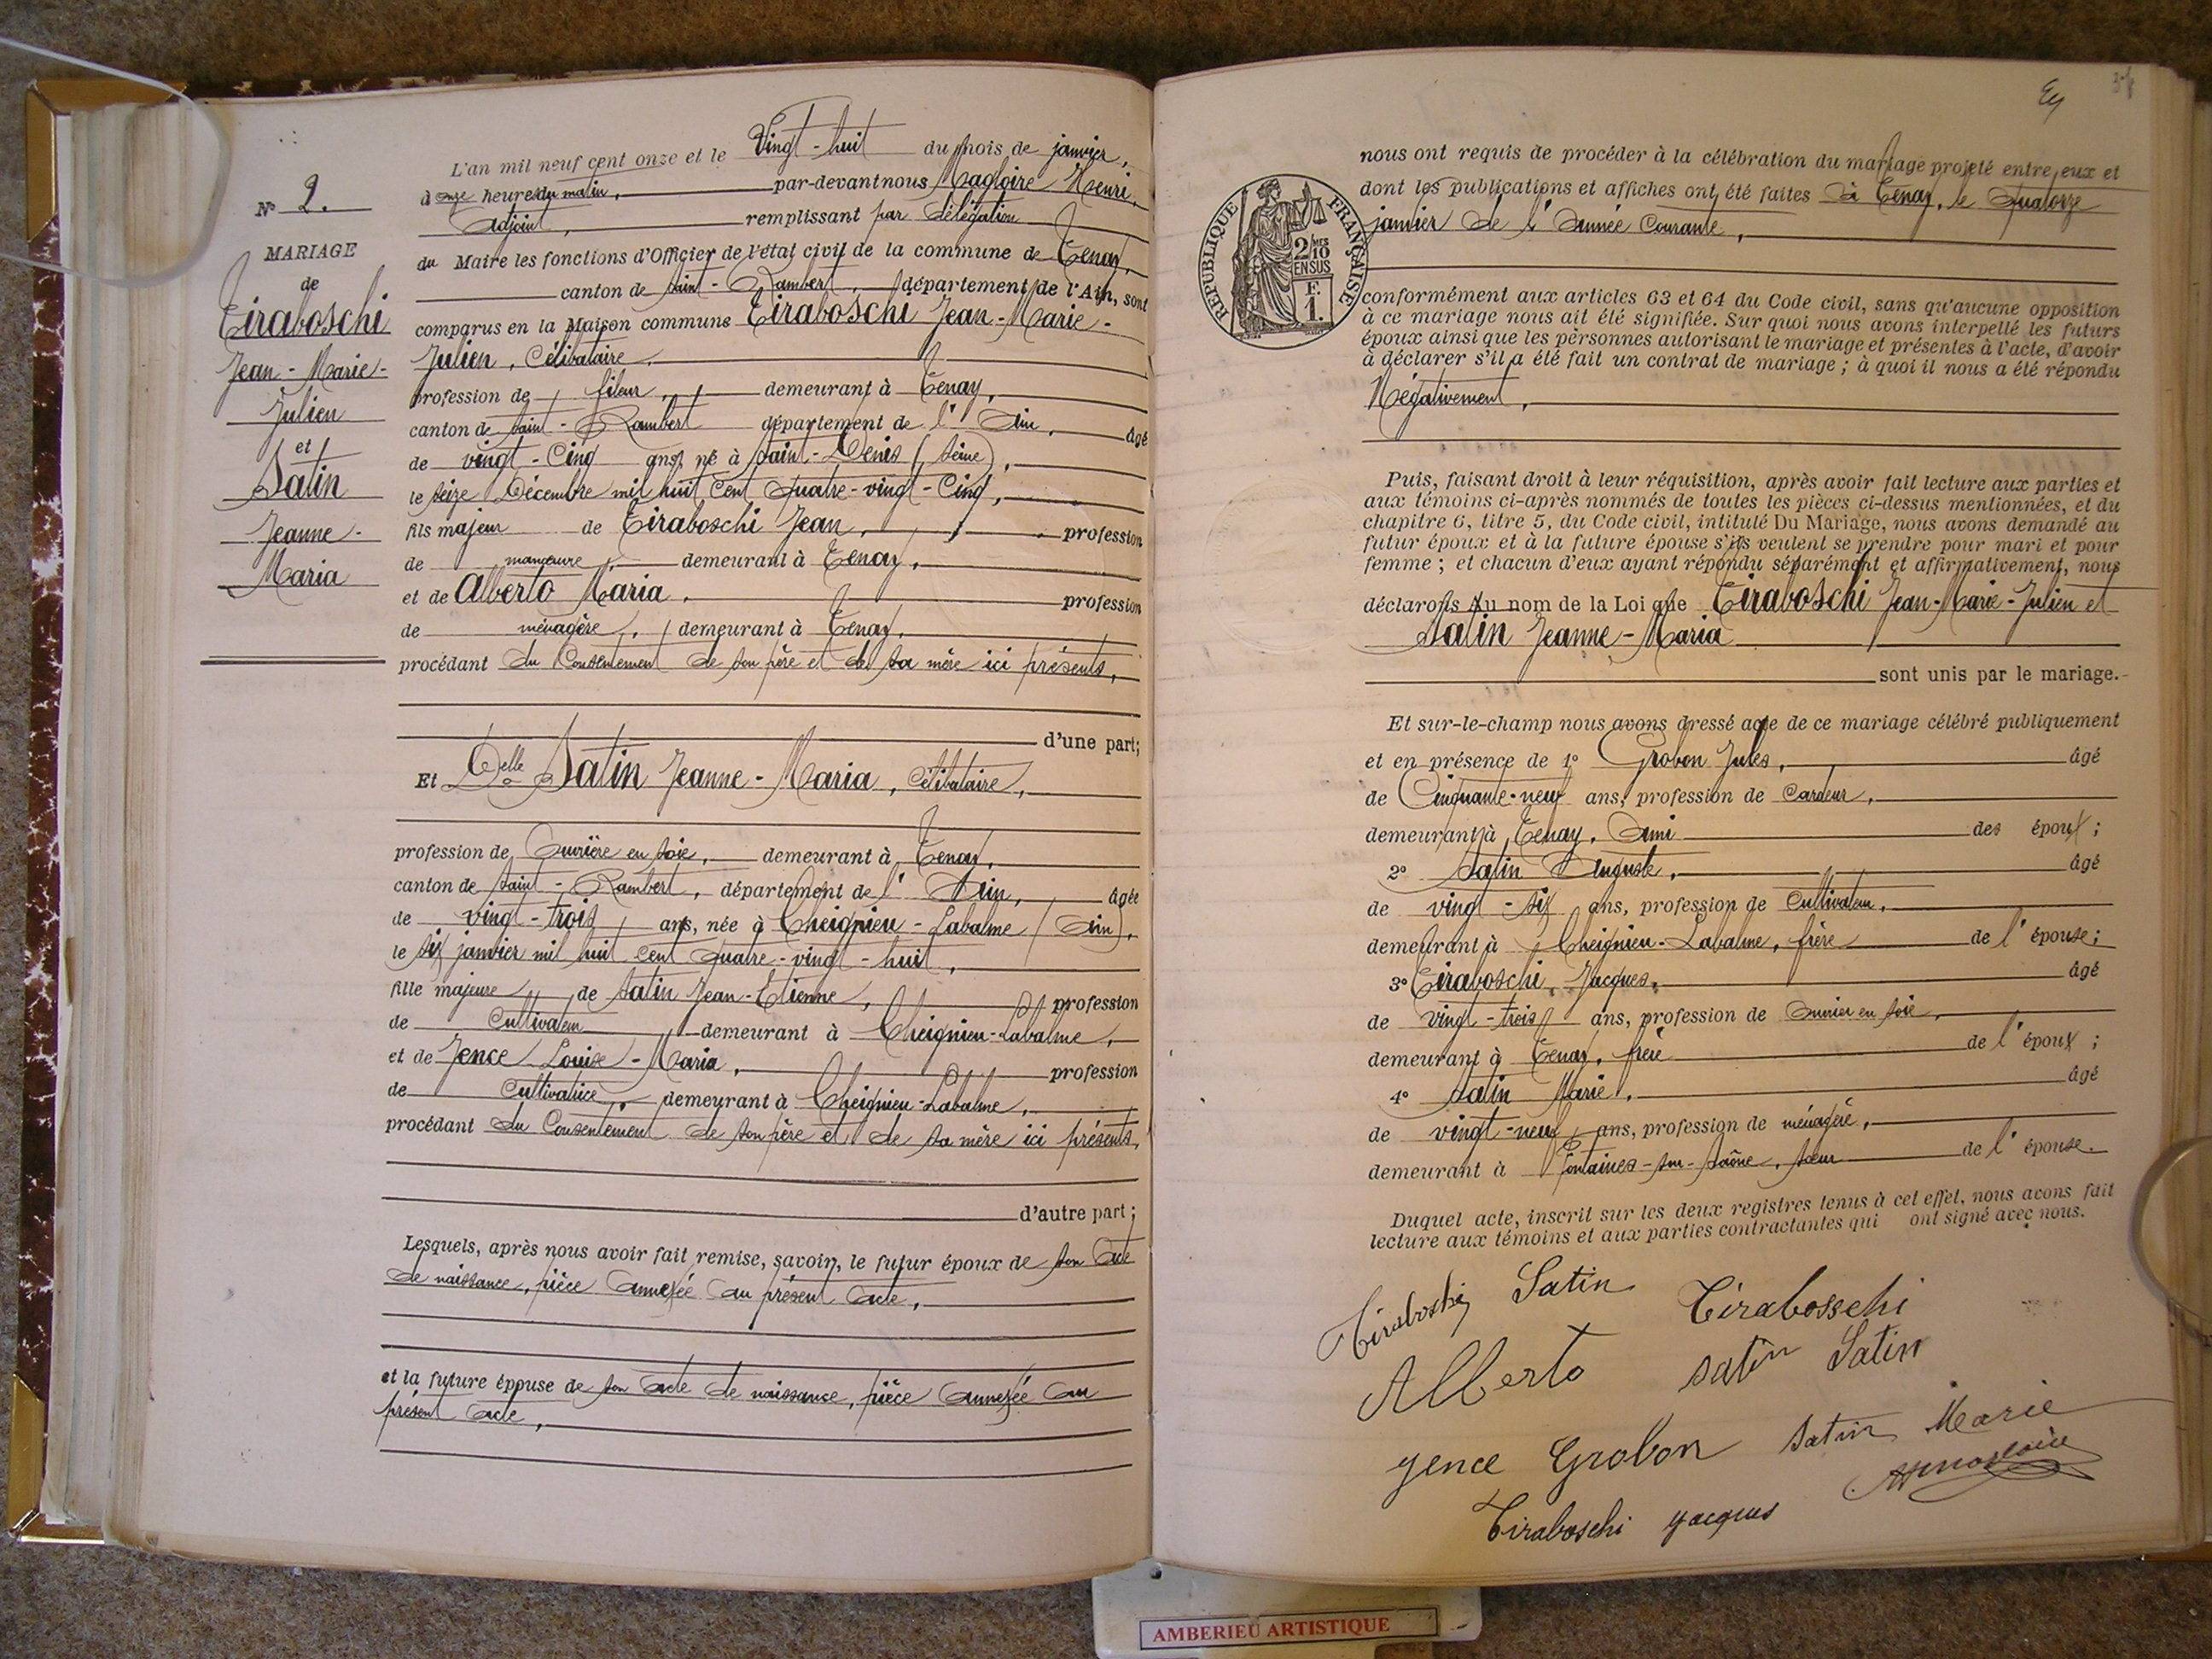 N° 2.
MARIAGE
de
Tiraboschi
Jean-Marie-
Julien
et
Satin
Jeanne-
Maria
L'an mil neuf cent onze et le Vingt-huit du mois de janvier,
à onze heures du matin, par-devant nous Magloire Henri,
Adjoint, remplissant par délégation
du Maire les fonctions d'Officier de l'état civil de la commune de Tenay,
canton de Saint-Rambert, département de l'Ain, sont
comparus en la Maison commune Tiraboschi Jean-Marie-
Julien, Célibataire,
profession de fileur, demeurant à Tenay,
canton de Saint-Rambert département de l'Ain, âgé
de vingt-cinq ans, né à Saint-Denis (Seine),
le seize Décembre mil huit cent quatre-vingt-cinq,
fils majeur de Tiraboschi Jean, profession
de manœuvre, demeurant à Tenay,
et de Alberto Maria, profession
de ménagère, demeurant à Tenay,
procédant du Consentement de son père et de sa mère ici présents,
d'une part;
Et Delle Satin Jeanne-Maria, célibataire,
profession de Ouvrière en soie, demeurant à Tenay,
canton de Saint-Rambert, département de l'Ain, âgée
de vingt-trois ans, née à Cheignieu-Labalme (Ain),
le six janvier mil huit cent quatre-vingt-huit,
fille majeure de Satin Jean-Etienne, profession
de Cultivateur demeurant à Cheignieu-Labalme,
et de Jence Louise-Maria, profession
de Cultivatrice, demeurant à Cheignieu-Labalme,
procédant du Consentement de son père et de sa mère ici présents,
d'autre part;
Lesquels, après nous avoir fait remise, savoir, le futur époux de son acte
de naissance, pièce annexée au présent acte,
et la future épouse de son acte de naissance, pièce annexée au
présent acte,
nous ont requis de procéder à la célébration du mariage projeté entre eux et
dont les publications et affiches ont été faites à Tenay, le quatorze
janvier de l'année courante,
RÉPUBLIQUE FRANÇAISE
2/10
MES
EN SUS
F.
1.
conformément aux articles 63 et 64 du Code civil, sans qu'aucune opposition
à ce mariage nous ait été signifiée. Sur quoi nous avons interpellé les futurs
époux ainsi que les personnes autorisant le mariage et présentes à l'acte, d'avoir
à déclarer s'il a été fait un contrat de mariage; à quoi il nous a été répondu
Négativement,
Puis, faisant droit à leur réquisition, après avoir fait lecture aux parties et
aux témoins ci-après nommés de toutes les pièces ci-dessus mentionnées, et du
chapitre 6, titre 5, du Code civil, intitulé Du Mariage, nous avons demandé au
futur époux et à la future épouse s'ils veulent se prendre pour mari et pour
femme; et chacun d'eux ayant répondu séparément et affirmativement, nous
déclarons au nom de la Loi que Tiraboschi Jean-Marie-Julien et
Satin Jeanne-Maria
sont unis par le mariage.
Et sur-le-champ nous avons dressé acte de ce mariage célébré publiquement
et en présence de 1° Grobon Jules, âgé
de Cinquante-neuf ans, profession de cardeur,
demeurant à Tenay, Ami des époux;
2° Satin Auguste, âgé
de vingt-six ans, profession de Cultivateur,
demeurant à Cheignieu-Labalme, frère de l'épouse;
3° Tiraboschi, Jacques, âgé
de vingt-trois ans, profession de Ouvrier en soie,
demeurant à Tenay, frère de l'époux;
4° Satin Marie, âgé
de vingt-neuf ans, profession de ménagère,
demeurant à Fontaines-sur-Saône, sœur de l'épouse.
Duquel acte, inscrit sur les deux registres tenus à cet effet, nous avons fait
lecture aux témoins et aux parties contractantes qui ont signé avec nous.
Tiraboschi Satin Tirabosschi
Alberto satin Satin
gence Grobon Satin Marie
Tiraboschi Jacques
AMBERIEU ARTISTIQUE